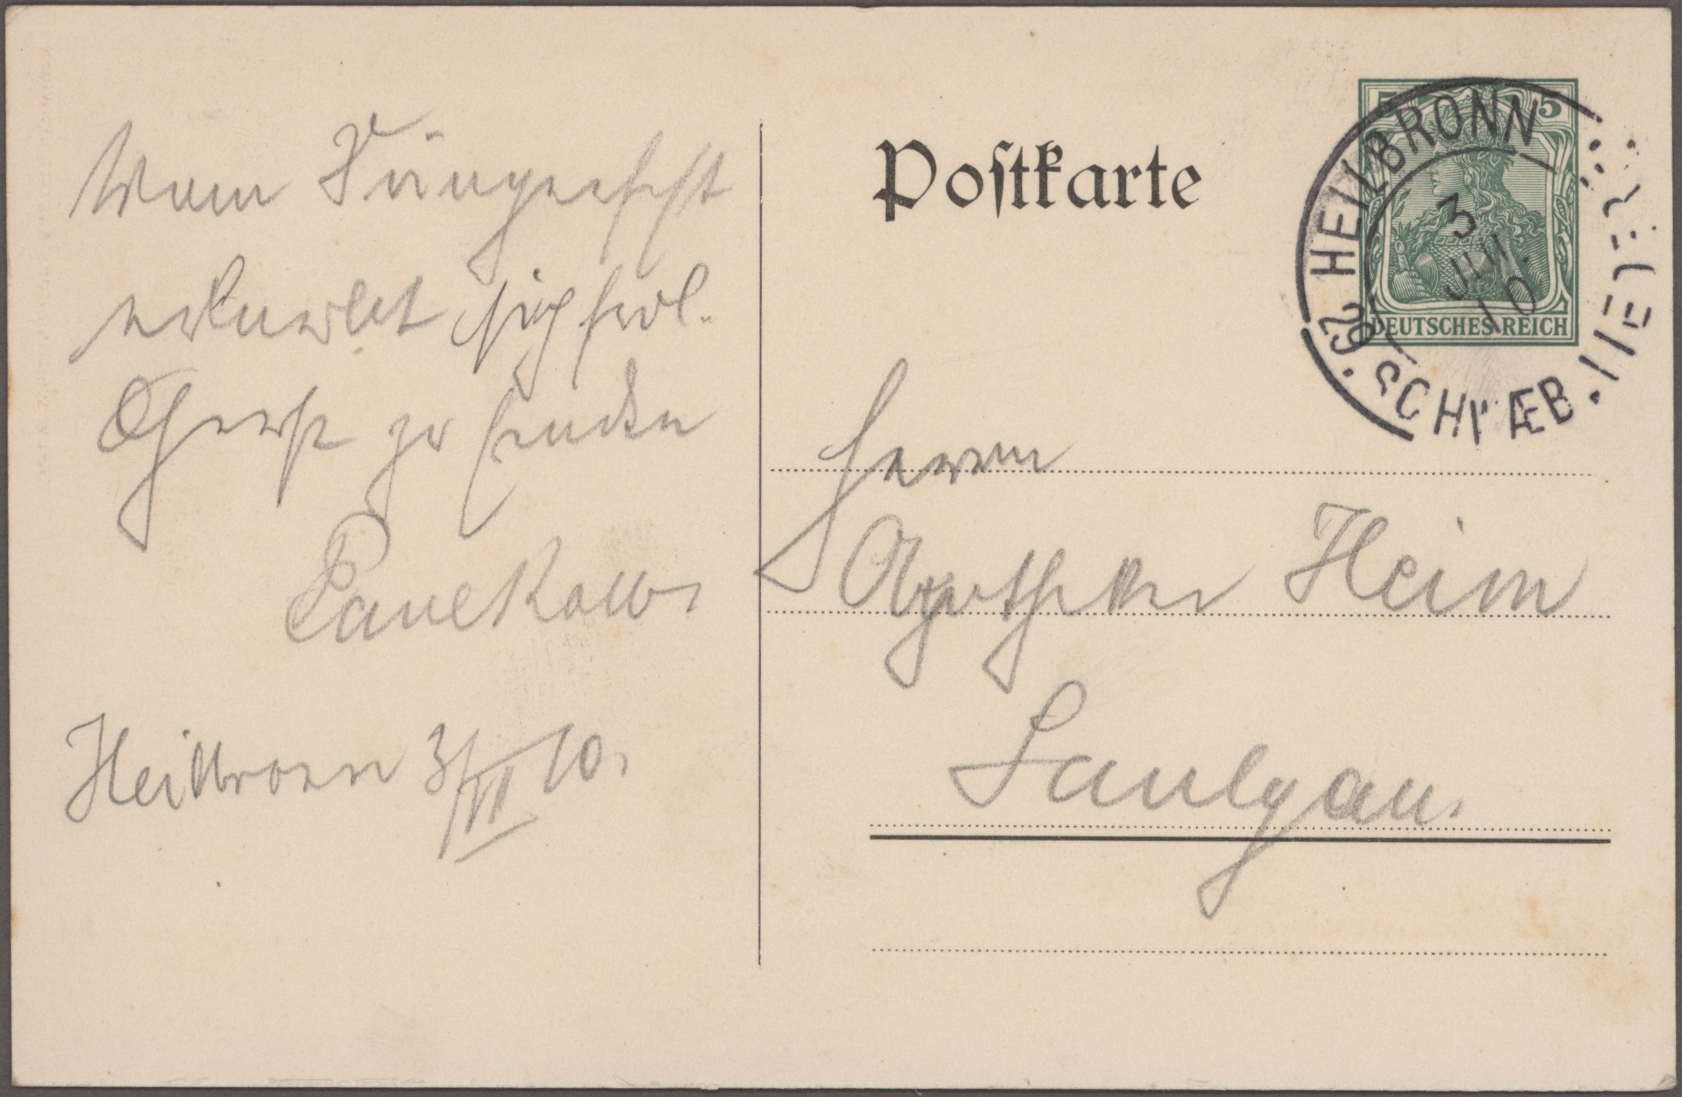 Vom Sängerfest
erlaubt sich frdl.
Gruß zu senden
Panekow.
Heilbronn 3/VII 10.
Postkarte
5 5
DEUTSCHES REICH
HEILBRONN
3
JULI.
10
29. SCHWÆB. LIEDERF.
Herrn
Apotheker Heim
Saulgau.